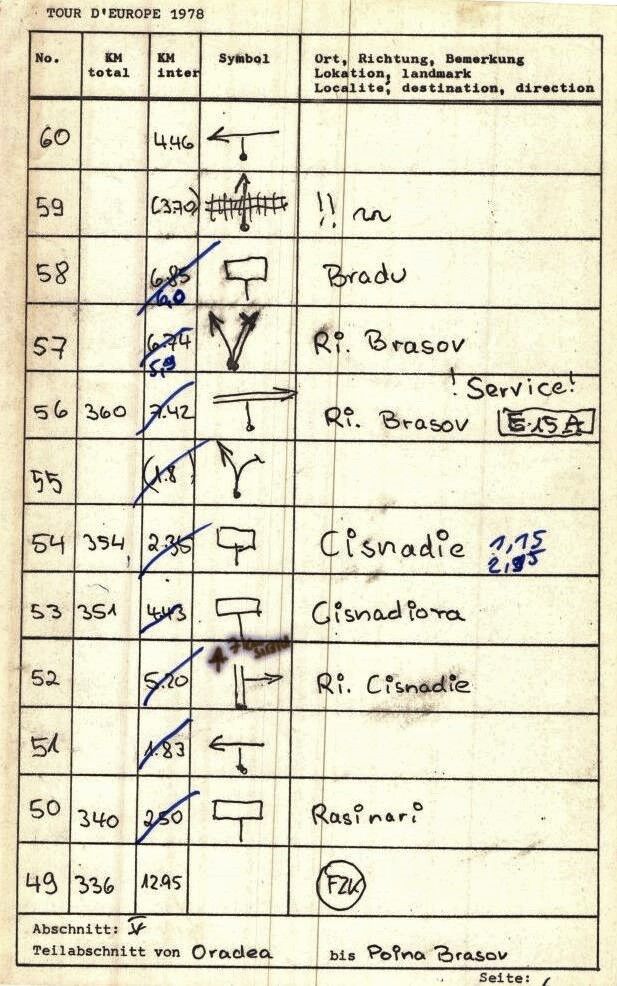 TOUR D'EUROPE 1978
No. KM total KM inter Symbol Ort, Richtung, Bemerkung
Lokation, landmark
Localite, destination, direction
60 4.46
59 (3.70) !!
58 6.85 Bradu
6,0
57 6.74 Ri. Brasov
5,9
! Service!
56 360 7.42 Ri. Brasov E 15 A
55 (1.8)
54 354 2.35 Cisnadie 1,15
53 351 4.43 Cisnadiora
52 5.20 Ri. Cisnadie
51 1.83
50 340 2.50 Rasinari
49 336 12.95 FZK
Abschnitt: V
Teilabschnitt von Oradea bis Poina Brasov
Seite: